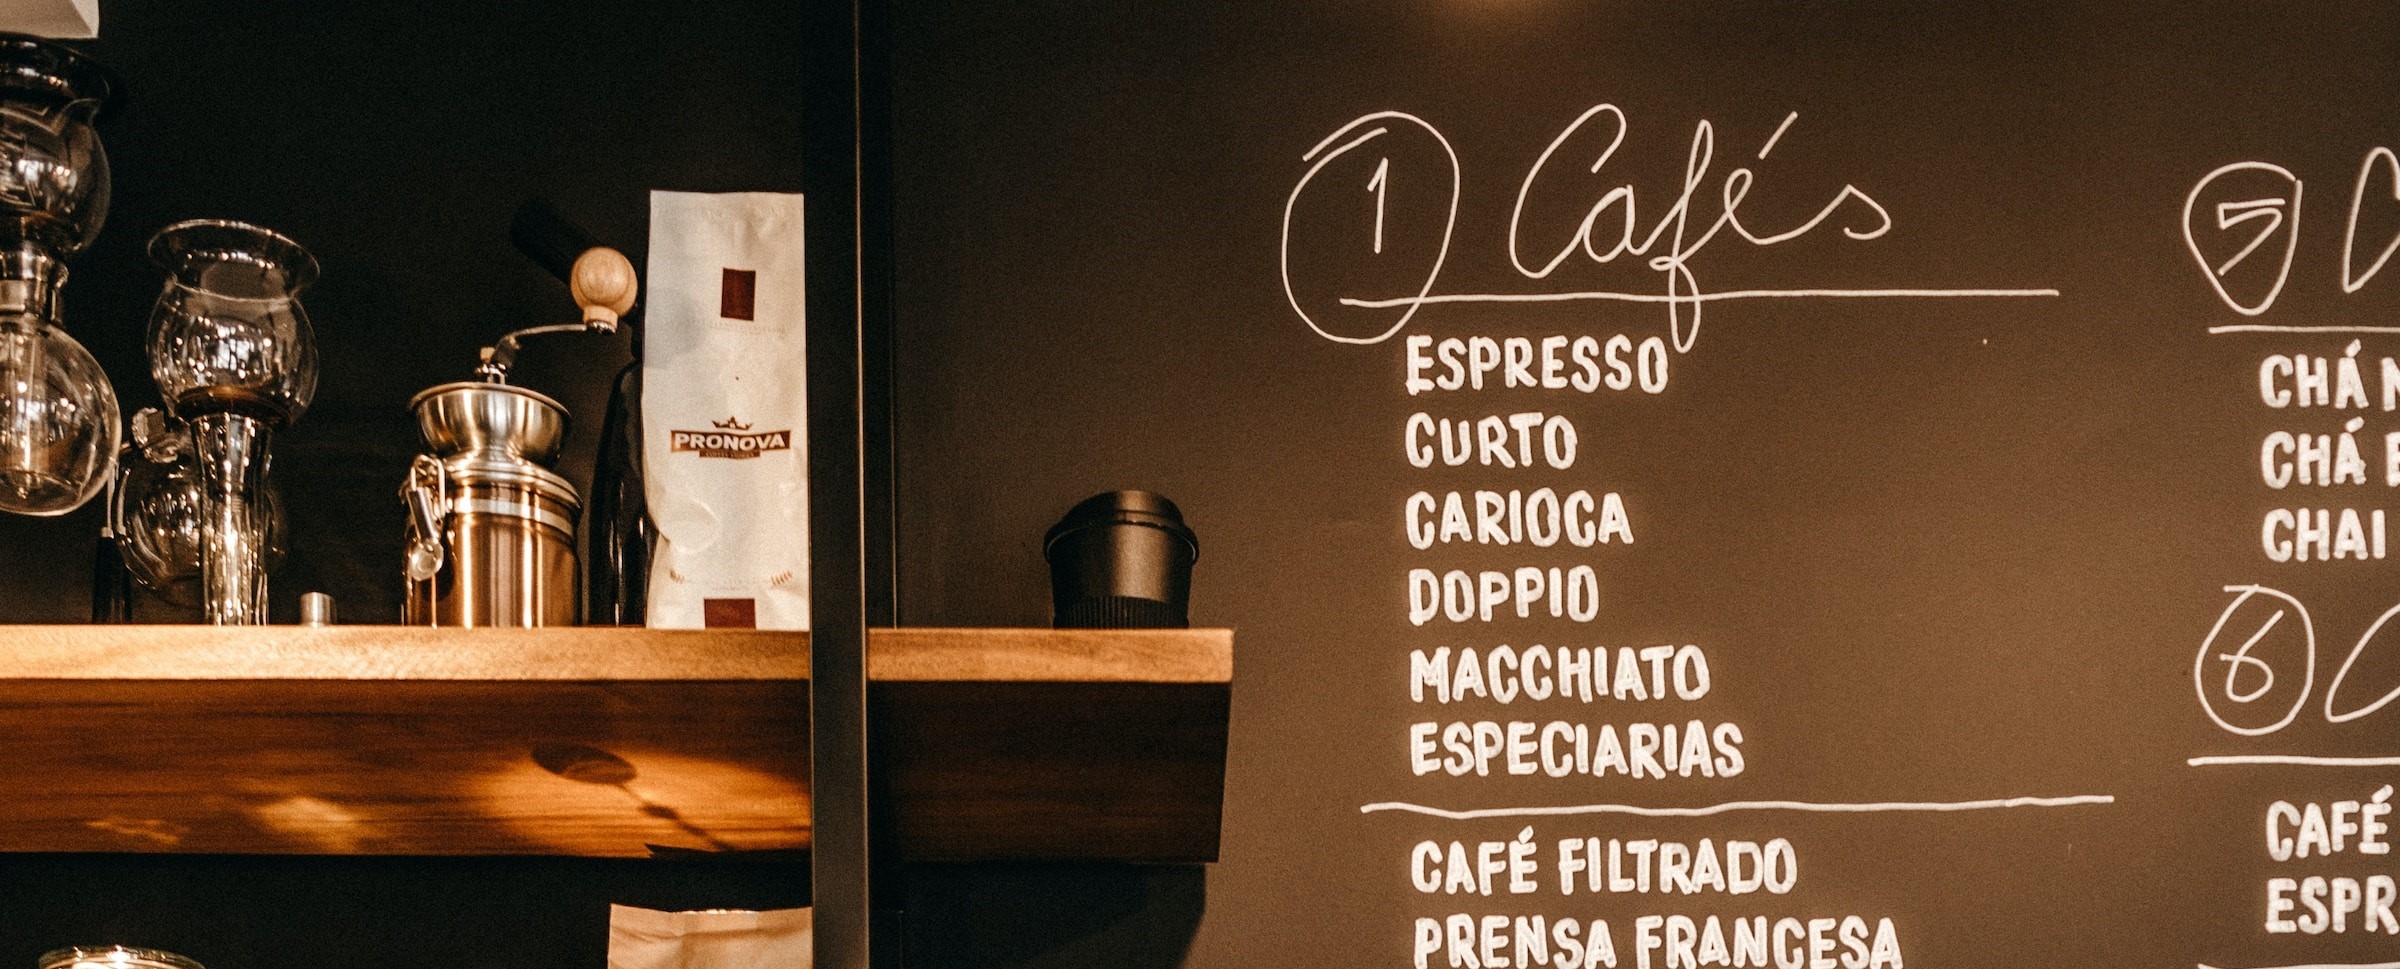 PRONOVA
1 Cafés
ESPRESSO
CURTO
CARIOCA
DOPPIO
MACCHIATO
ESPECIARIAS
CAFÉ FILTRADO
PRENSA FRANCESA
5
CHÁ
CHÁ
CHAI
6
CAFÉ